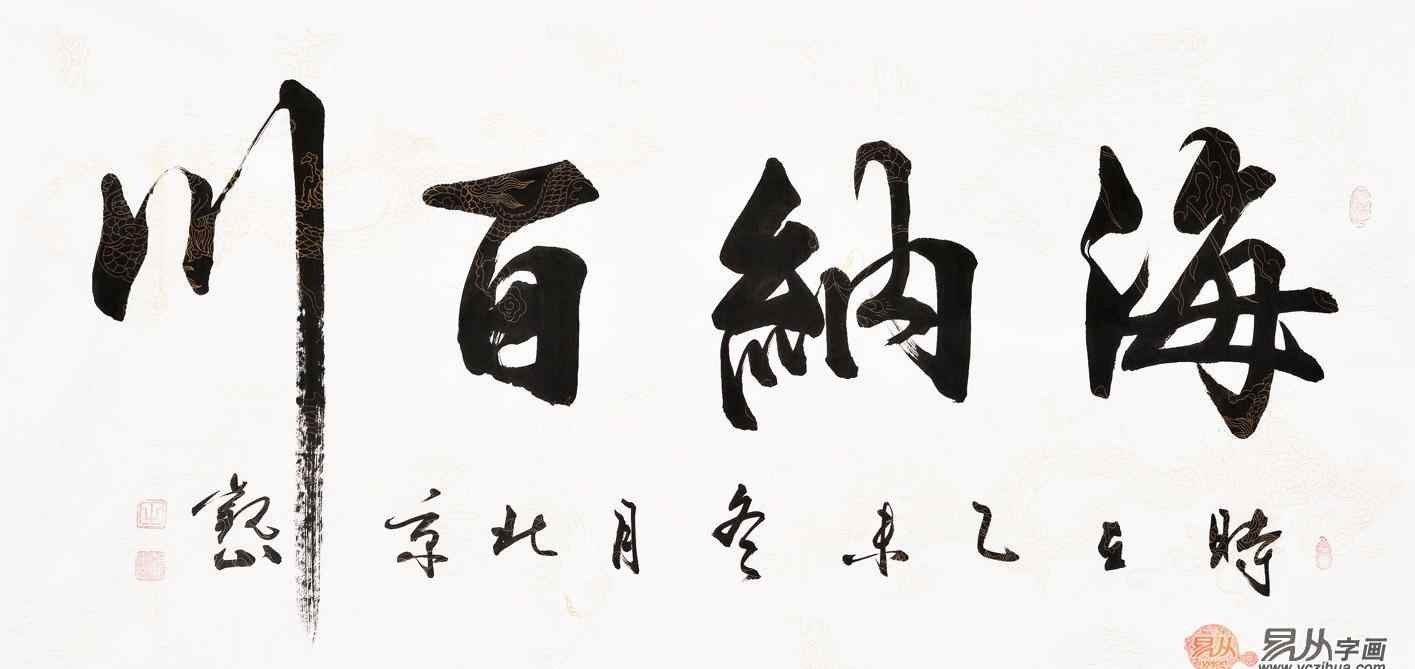 海納百川
時在乙未冬月北京觀山
山
易从 易从字画
www.yczihua.com